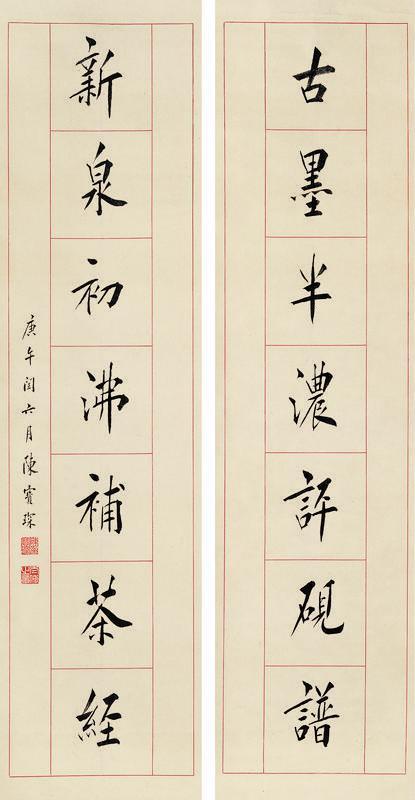 古墨半濃評硯譜
新泉初沸補茶經
庚午閏六月陳寶琛